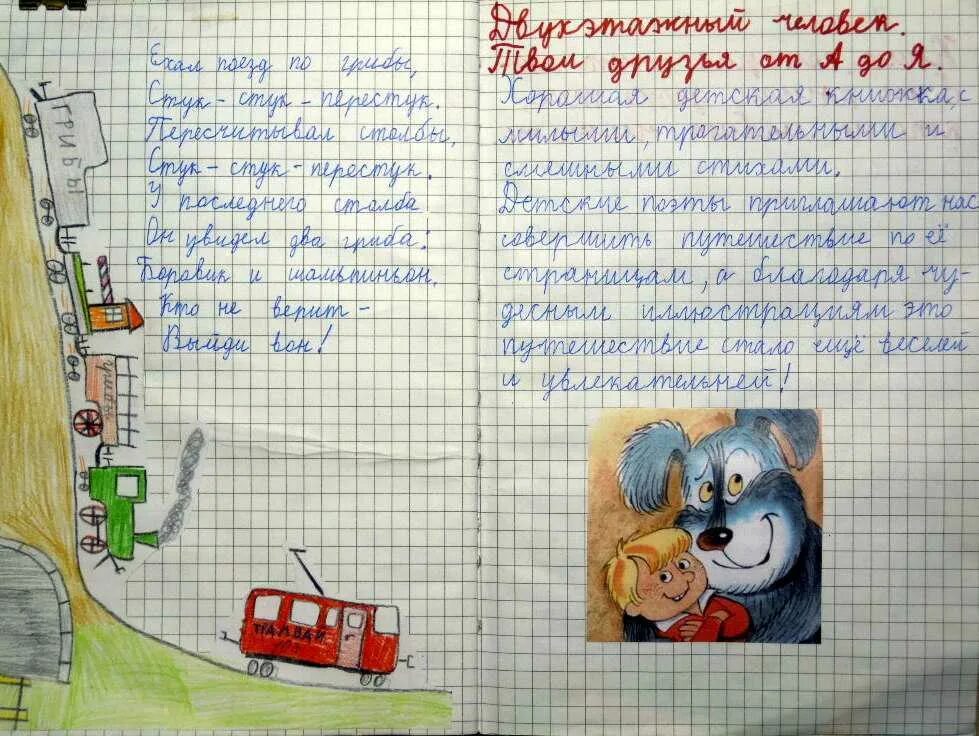 Ехал поезд по грибы,
Стук-стук-перестук.
Пересчитывал столбы,
Стук-стук-перестук.
У последнего столба
Он увидел два гриба:
Боровик и шампиньон.
Кто не верит-
Выйди вон!
ГРИБЫ
ТРАМВАЙ
Двухэтажный человек.
Твои друзья от А до Я.
Хорошая детская книжка, с
милыми, трогательными и
смешными стихами.
Детские поэты приглашают нас
совершить путешествие по её
страницам, а благодаря чу-
десным иллюстрациям это
путешествие стало ещё веселей
и увлекательней!